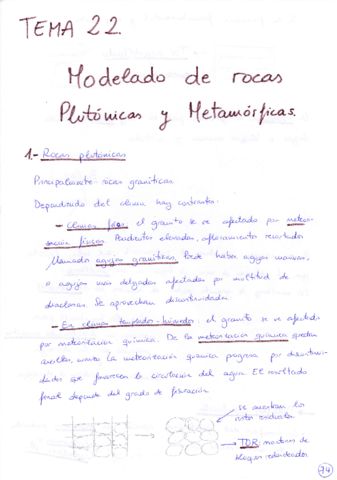 TEMA 22.
Modelado de rocas
Plutónicas y Metamórficas.
1- Rocas plutónicas
Principalmente rocas graníticas.
Dependiendo del clima hay contrastes:
- Climas fríos: el granito se ve afectado por meteori-
zación física. Pendientes elevadas, afloramientos recortados
llamados agujas graníticas. Puede haber agujas masivas,
o agujas más delgadas afectadas por multitud de
diaclasas. Se aprovechan discontinuidades
- En climas templados-húmedos: el granito se ve afectado
por meteorización química. De la meteorización química quedan
arcillas, La meteorización química progresa por discontinui-
dades que favorecen la circulación del agua. El resultado
final depende del grado de
se muestran los
residuales
TOR: montones de
bloques redondeados
74